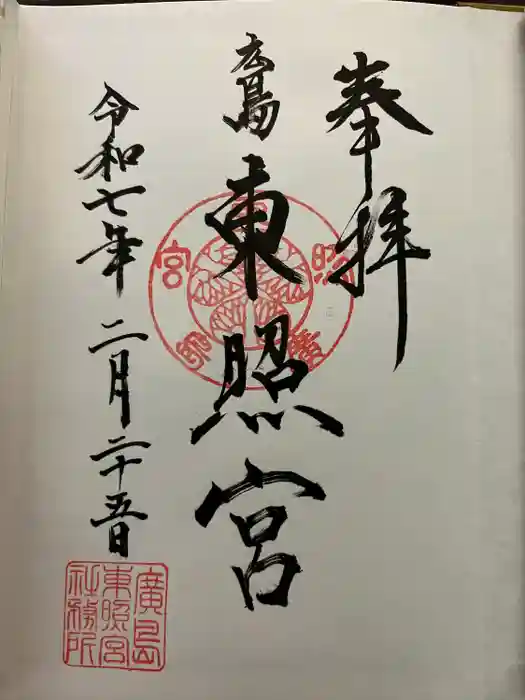 奉拝
広島
東照宮
令和七年 二月二十五日
廣島
東照宮
社務所